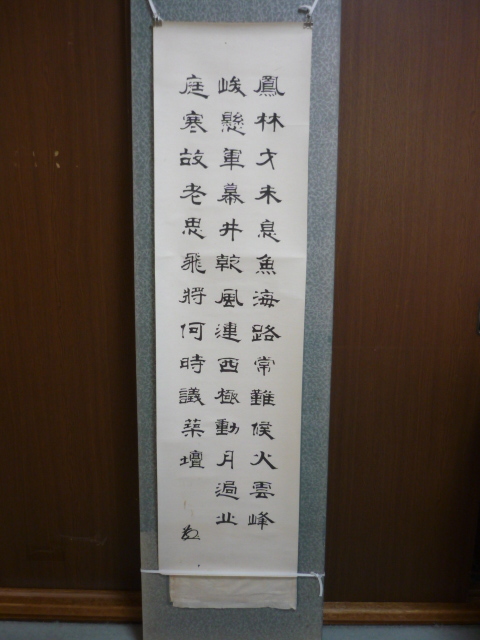 鳳林戈未息魚海路常難候火雲峰
峻懸軍幕井乾風連西極動月過北
庭寒故老思飛將何時議築壇